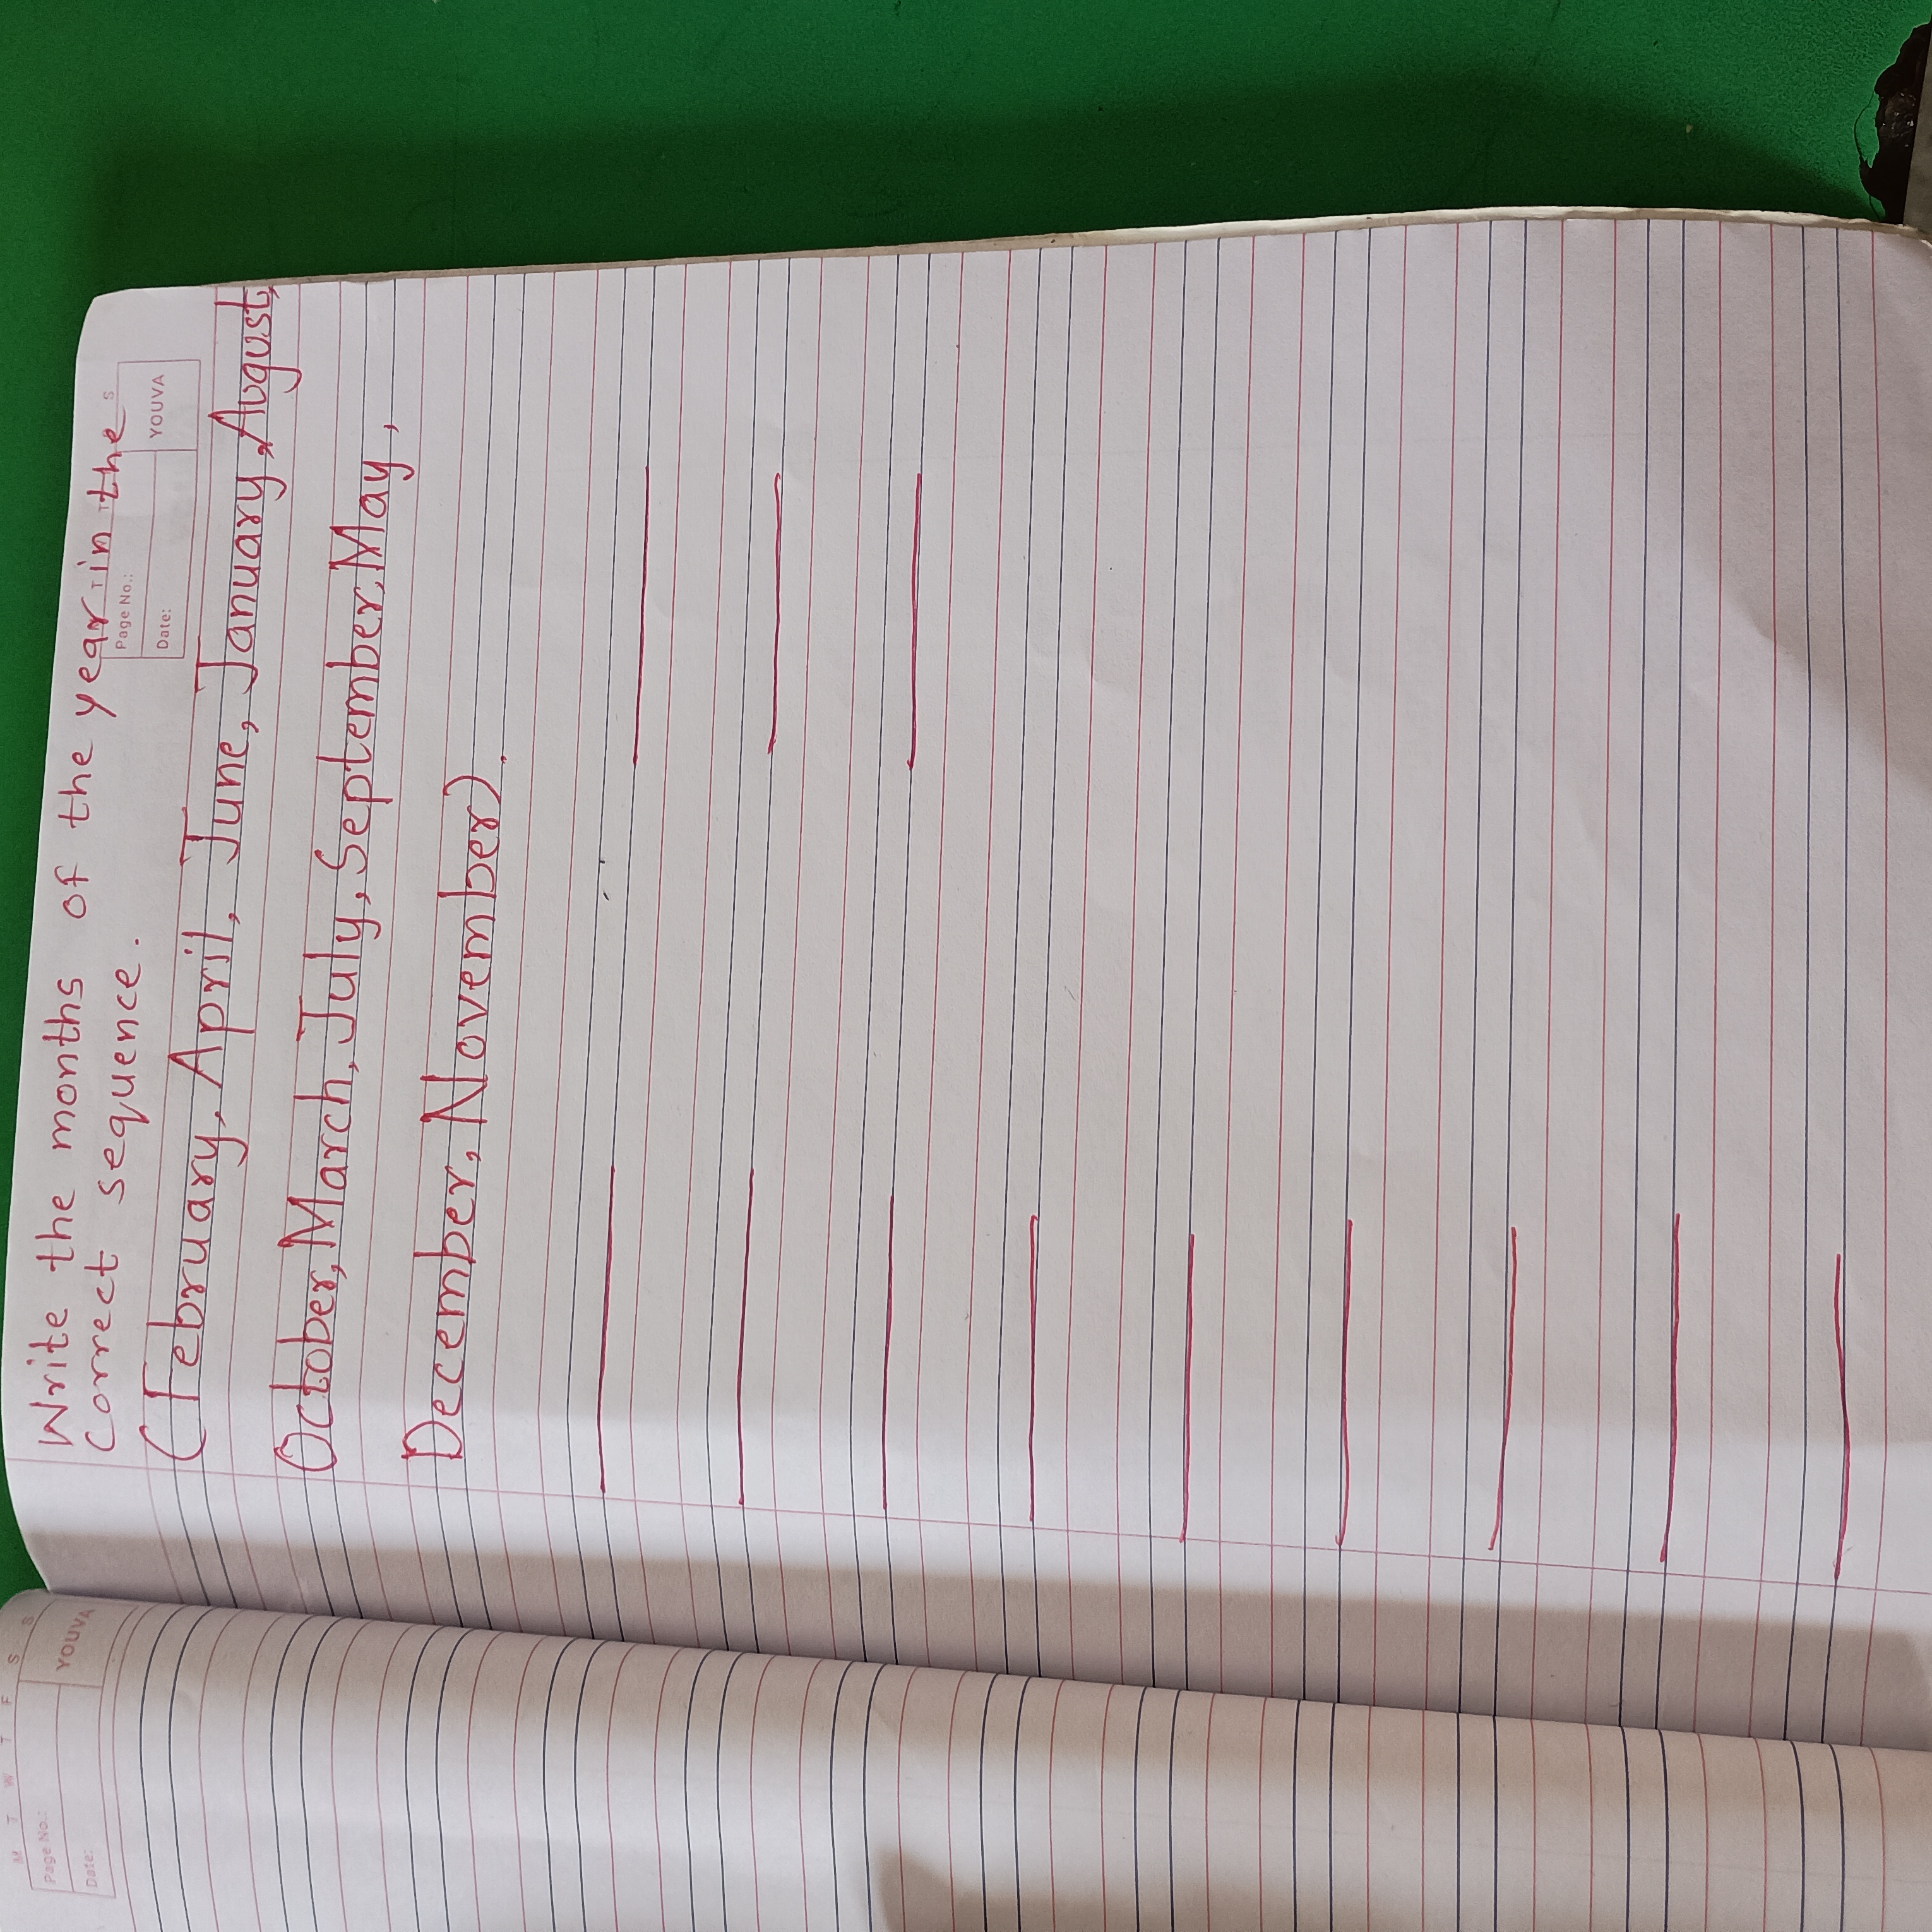 Write the months of the year in the
Correct sequence.
S
Page No.:
Date:
YOUVA
(February, April, June, January, August,
October, March, July, September, May,
December, November).
M T W T F S S
Page No.:
Date:
YOUVA